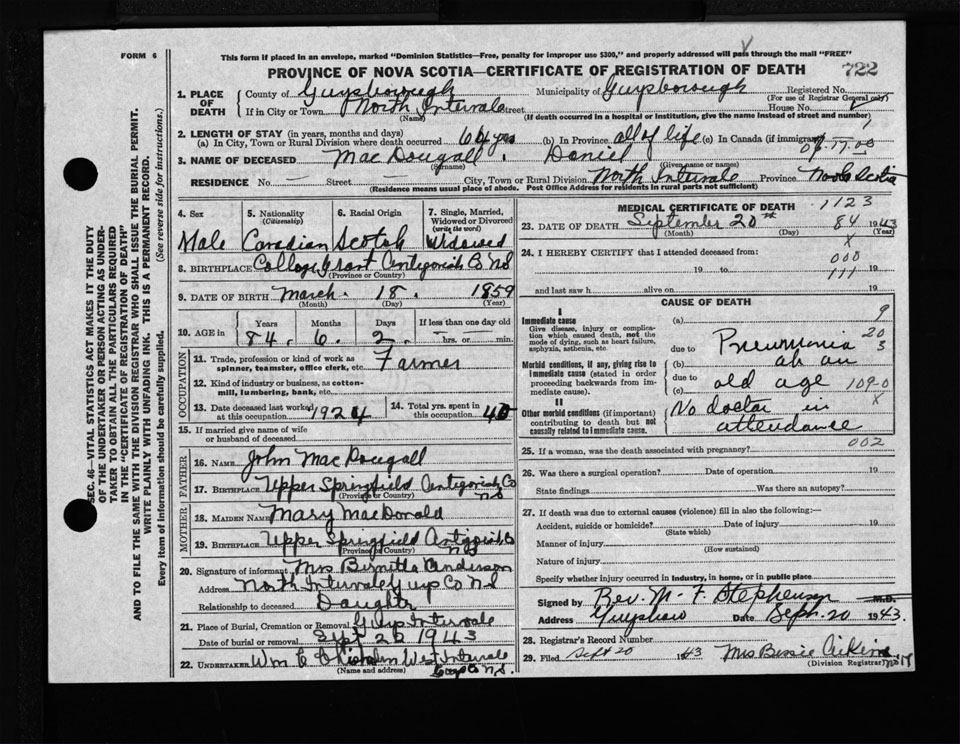 FORM 6
This form if placed in an envelope, marked "Dominion Statistics—Free, penalty for improper use $300," and properly addressed will pass through the mail "FREE"
PROVINCE OF NOVA SCOTIA—CERTIFICATE OF REGISTRATION OF DEATH
722
SEC. 46—VITAL STATISTICS ACT MAKES IT THE DUTY
OF THE UNDERTAKER OR PERSON ACTING AS UNDER-
TAKER TO OBTAIN ALL THE PARTICULARS REQUIRED
IN THE "CERTIFICATE OF REGISTRATION OF DEATH"
AND TO FILE THE SAME WITH THE DIVISION REGISTRAR WHO SHALL ISSUE THE BURIAL PERMIT.
WRITE PLAINLY WITH UNFADING INK. THIS IS A PERMANENT RECORD.
Every item of information should be carefully supplied. (See reverse side for instructions.)
1. PLACE OF DEATH
County of Guysborough Municipality of Guysborough Registered No.
(For use of Registrar General only)
If in City or Town North Intervale Street House No.
(Name) (If death occurred in a hospital or institution, give the name instead of street and number)
2. LENGTH OF STAY (in years, months and days)
(a) In City, Town or Rural Division where death occurred 64 yrs (b) In Province all of life (c) In Canada (if immigrant)
3. NAME OF DECEASED MacDougall, Daniel
(Surname) (Given name or names)
RESIDENCE No. — Street — City, Town or Rural Division North Intervale Province Nova Scotia
(Residence means usual place of abode. Post Office Address for residents in rural parts not sufficient)
4. Sex
Male
5. Nationality
(Citizenship)
Canadian
6. Racial Origin
Scotch
7. Single, Married,
Widowed or Divorced
(write the word)
Widowed
8. BIRTHPLACE College Grant Antigonish Co NS
(Province or Country)
9. DATE OF BIRTH March 18. 1859
(Month) (Day) (Year)
10. AGE in
Years Months Days If less than one day old
84. 6. 2. hrs. or min.
OCCUPATION
11. Trade, profession or kind of work as
spinner, teamster, office clerk, etc. Farmer
12. Kind of industry or business, as cotton-
mill, lumbering, bank, etc.
13. Date deceased last worked
at this occupation 1924
14. Total yrs. spent in
this occupation 40
15. If married give name of wife
or husband of deceased
FATHER
16. Name John MacDougall
17. Birthplace Upper Springfield Antigonish Co
(Province or Country) NS
MOTHER
18. Maiden Name Mary MacDonald
19. Birthplace Upper Springfield Antigonish Co
(Province or Country) NS
20. Signature of informant Mrs Anderson
Address North Intervale Guys Co NS
Relationship to deceased Daughter
21. Place of Burial, Cremation or Removal Guys Intervale
Date of burial or removal Sept 22 1943
22. UNDERTAKER Wm C Chisholm West Intervale
(Name and address) Guys Co N.S.
MEDICAL CERTIFICATE OF DEATH 1123
23. DATE OF DEATH September 20th 84 1943
(Month) (Day) (Year)
X
24. I HEREBY CERTIFY that I attended deceased from:
000
19 to 111 19
and last saw h alive on 19
CAUSE OF DEATH
I
Immediate cause
Give disease, injury or complica-
tion which caused death, not the
mode of dying, such as heart failure,
asphyxia, asthenia, etc.
(a) 9
due to Pneumonia 20
3
Morbid conditions, if any, giving rise to
immediate cause (stated in order
proceeding backwards from im-
mediate cause).
(b)
due to old age 109-0
(c)
II
Other morbid conditions (if important)
contributing to death but not
causally related to immediate cause.
No doctor in X
attendance
25. If a woman, was the death associated with pregnancy? 002
26. Was there a surgical operation? Date of operation 19
State findings Was there an autopsy?
27. If death was due to external causes (violence) fill in also the following:—
Accident, suicide or homicide? Date of injury 19
(State which)
Manner of injury
(How sustained)
Nature of injury
Specify whether injury occurred in industry, in home, or in public place
Signed by Rev. M. F. Stephenson M.D.
Address Guysboro Date Sept. 20 1943.
28. Registrar's Record Number
29. Filed Sept 20 1943 Mrs Bessie Aikins
(Division Registrar)